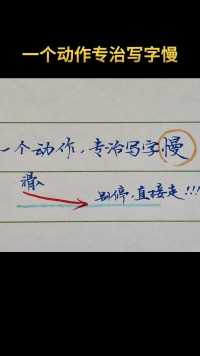 一个动作专治写字慢
一个动作，专治写字慢
滑入
别停，直接走!!!